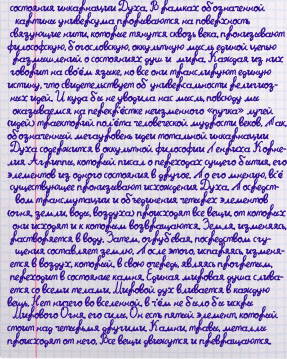 состояния инкарнации Духа. В рамках обозначенной
картины универсума прорываются на поверхность
связующие нити, которые тянутся сквозь века, пронизывают
философскую, богословскую, оккультную мысль единой цепью
размышлений о состояниях души и мира. Каждая из них
говорит на своём языке, но все они транслируют единую
истину, что свидетельствует об универсальности религиоз-
ных идей. И куда бы не уводила нас мысль, повсюду мы
оказываемся на перекрёстке неизменного "пучка" путей
(идей) траекторий полёта человеческой мудрости веков. Так,
обозначенный метауровень идеи тотальной инкарнации
Духа содержится в оккультной философии Генриха Корне-
лия Агриппы, который писал о переходах сущего бытия, его
элементов из одного состояния в другое. По его мнению, всё
существующее пронизывают исхождения Духа. Посредст-
вом трансмутации и объединения четырех элементов
(огня, земли, воды, воздуха) происходят все вещи, от которых
они исходят и к которым возвращаются. Земля, изменяясь,
растворяется в воду. Затем, огрубевая, посредством сгу-
щения составляет землю. После этого, испаряясь, изменя-
ется в воздух, который, в свою очередь, являясь прогретым,
переходит в состояние камня. Единая мировая душа слива-
ется со всеми телами. Мировой дух вливается в каждую
вещь. Нет ничего во вселенной, в чём не было бы искры
Мирового Огня, его силы. Он есть пятый элемент, который
стоит над четырьмя другими. Камни, травы, металлы
происходят от него. Все вещи движутся и превращаются.